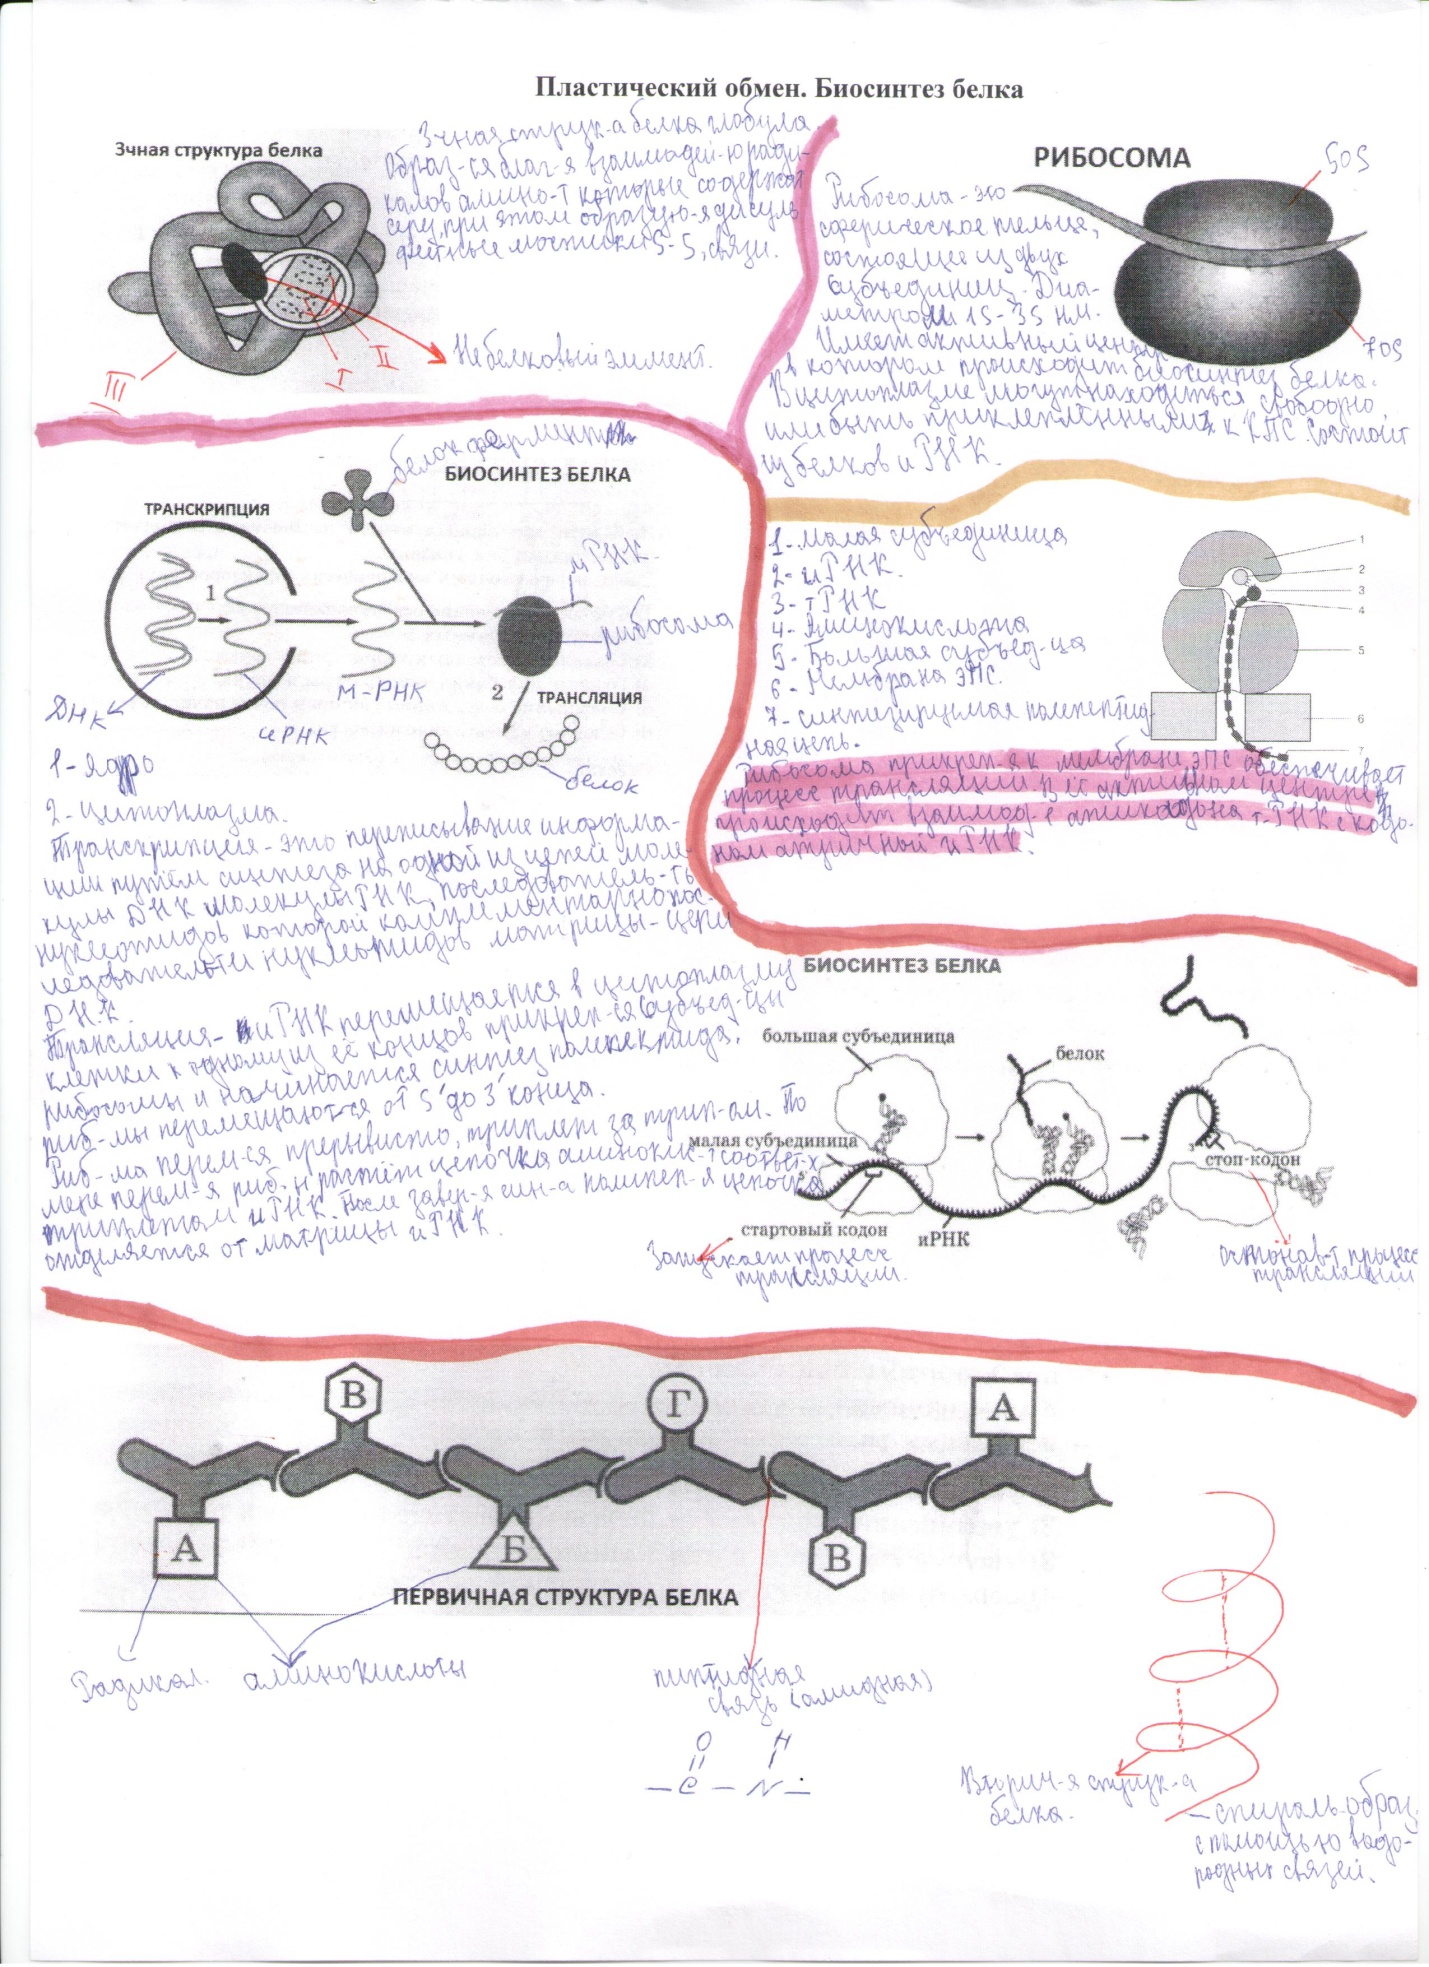 Пластический обмен. Биосинтез белка
3чная структура белка
3чная струк-а белка глобула.
Образ-ся благ-я взаимодей-ю ради-
калов амино-т которые содержат
серу, при этом образую-я дисуль
фитные мостики S-S, связи.
Небелковый элимент.
I
II
III
РИБОСОМА
50S
70S
Рибосома - это
сферическое тельце,
состоящее из двух
субъединиц. Диа-
метром 15-35 нм.
Имеет активный центр
в котором происходит биосинтез белка.
В цитоплазме могут находиться свободно,
или быть прикрепленными к КПС. состоит
из белков и РНК.
БИОСИНТЕЗ БЕЛКА
белок фермент
ТРАНСКРИПЦИЯ
1
иРНК
рибосома
М-РНК
2
ТРАНСЛЯЦИЯ
белок
ДНК
иРНК
1- Ядро
2- Цитоплазма.
Транскрипция - это переписывание информа-
ции путём синтеза на одной из цепей моле-
кулы ДНК молекулы РНК, последователь-ть
нуклеотидов которой комплементарно пос-
ледовательти нуклеотидов матрицы - цепи
ДНК.
Трансляция - иРНК перемещается в цитоплазму
клетки к одному из её концов прикреп-ся субъед-цы
рибосомы и начинается синтез полипептида.
риб-мы перемещают-ся от 5' до 3' конца.
Риб-ма перем-ся прерывисто, триплет за трип-ом. По
мере перем-я риб-н растёт цепочка аминокис-т соответ-х
триплетам иРНК. После завер-я син-а полипеп-я цепочка
отделяется от матрицы иРНК.
1- Малая субъединица
2- иРНК.
3- тРНК
4- Аминокислота
5- Большая субъед-ца
6- Мембрана ЭПС.
7- синтезируемая полепептид-
ная цепь.
1
2
3
4
5
6
7
Рибосома прикреп-я к мембране ЭПС обеспечивает
процесс трансляции. В её активном центре
происходит взаимод-е антикодона т-РНК с кодо-
ном матричной иРНК.
БИОСИНТЕЗ БЕЛКА
большая субъединица
белок
малая субъединица
стоп-кодон
стартовый кодон
иРНК
Запускает процесс
трансляции.
Останав-т процесс
трансляции
В
Г
А
А
Б
В
ПЕРВИЧНАЯ СТРУКТУРА БЕЛКА
Радикал.
аминокислоты
пиптидная
связь (амидная)
O H
— C — N —
Вторич-я струк-а
белка.
— спираль. образ.
с помощью водо-
родных связей.